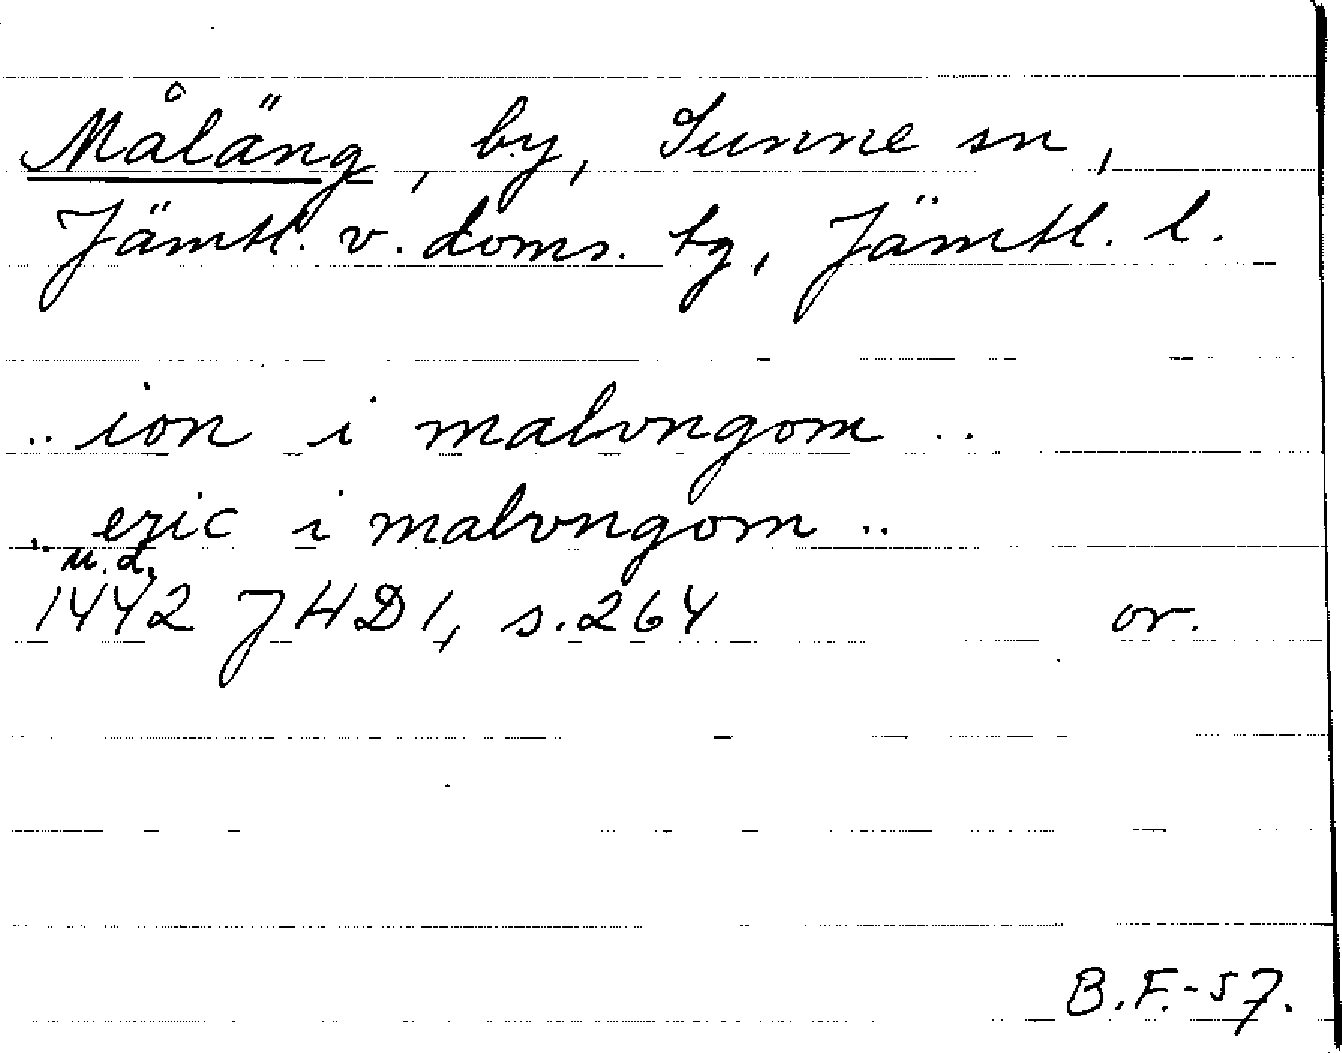 Måläng, by, Sunne sn,
Jämtl. v. doms. tg, Jämtl. l.
.. ion i malvngom ..
.. eric i malvngom ..
u. d.
1442 JHD 1, s. 264 or.
B.F.-57.